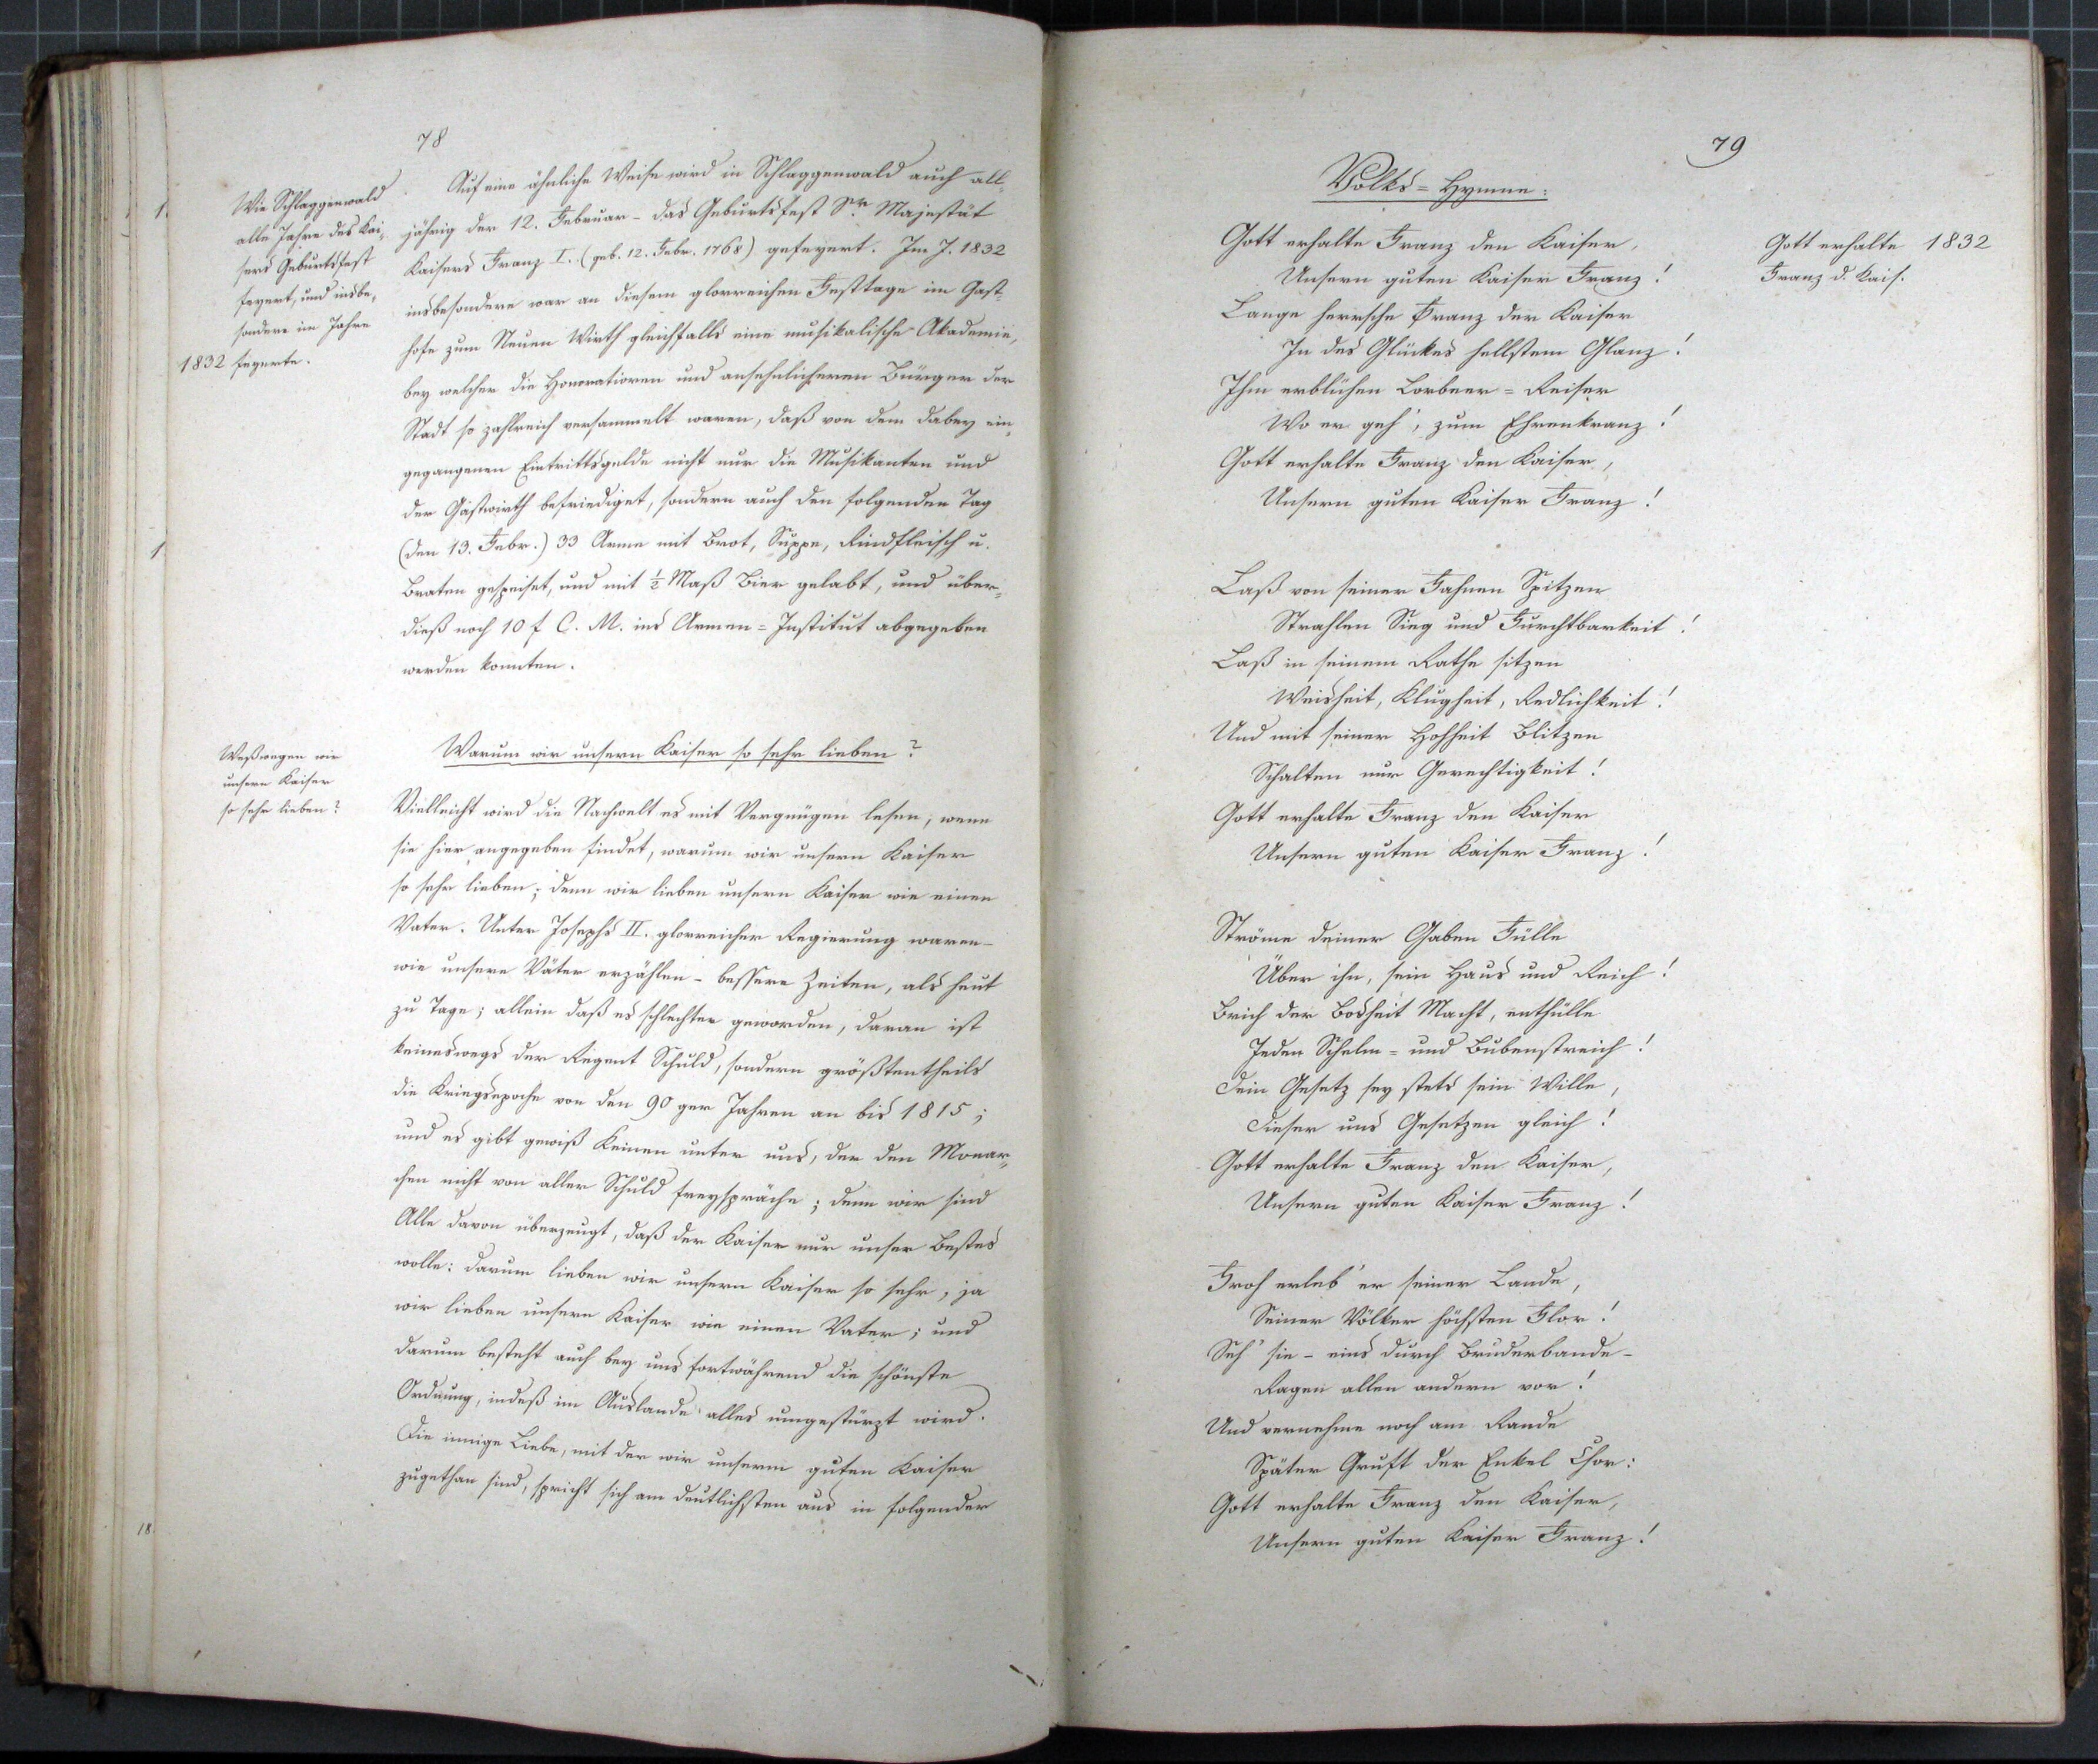 78
Wie Schlaggenwald
alle Jahre des Kai-
sers Geburtsfest
feyert, und insbe-
sondere im Jahre
1832 feyerte.
Auf eine ähnliche Weise wird in Schlaggenwald auch all-
jährig der 12. Februar - das Geburtsfest Sr Majestät
Kaisers Franz I. (geb. 12. Febr. 1768) gefeyert. Im J. 1832
insbesondere war an diesem glorreichen Festtage im Gast-
hofe zum Neuen Wirth gleichfalls eine musikalische Akademie,
bey welcher die Honoratioren und ansehnlicheren Bürger der
Stadt so zahlreich versammelt waren, daß von dem dabey ein-
gegangenen Eintrittsgelde nicht nur die Musikanten und
der Gastwirth befriediget, sondern auch den folgenden Tag
(den 13. Febr.) 33 Arme mit Brot, Suppe, Rindfleisch u.
Braten gespeiset, und mit ½ Maß Bier gelabt, und über-
dieß noch 10 f C. M. ins Armen=Institut abgegeben
werden konnten.
Weßwegen wir
unsern Kaiser
so sehr lieben?
Warum wir unsern Kaiser so sehr lieben?
Vielleicht wird die Nachwelt es mit Vergnügen lesen, wenn
sie hier angegeben findet, warum wir unsern Kaiser
so sehr lieben; denn wir lieben unsern Kaiser wie einen
Vater. Unter Josephs II. glorreicher Regierung waren -
wie unsere Väter erzählen - bessere Zeiten, als heut
zu Tage; allein daß es schlechter geworden, daran ist
keineswegs der Regent Schuld, sondern größtentheils
die Kriegsepoche von den 90 ger Jahren an bis 1815;
und es gibt gewiß Keinen unter uns, der den Monar-
chen nicht von aller Schuld freyspräche; denn wir sind
Alle davon überzeugt, daß der Kaiser nur unser Bestes
wolle: darum lieben wir unsern Kaiser so sehr, ja
wir lieben unsern Kaiser wie einen Vater; und
darum besteht auch bey uns fortwährend die schönste
Ordnung, indeß im Auslande alles umgestürzt wird.
Die innige Liebe, mit der wir unserm guten Kaiser
zugethan sind, spricht sich am deutlichsten aus in folgender
18.
79
Volks=Hymne:
Gott erhalte 1832
Franz d. Kais.
Gott erhalte Franz den Kaiser,
Unsern guten Kaiser Franz!
Lange herrsche Franz der Kaiser
In des Glückes hellstem Glanz!
Ihm erblühen Lorbeer=Reiser
Wo er geh', zum Ehrenkranz!
Gott erhalte Franz den Kaiser,
Unsern guten Kaiser Franz!
Laß von seiner Fahnen Spitzen
Strahlen Sieg und Furchtbarkeit!
Laß in seinem Rathe sitzen
Weisheit, Klugheit, Redlichkeit!
Und mit seiner Hohheit Blitzen
Schalten nur Gerechtigkeit!
Gott erhalte Franz den Kaiser
Unsern guten Kaiser Franz!
Ströme deiner Gaben Fülle
Über ihn, sein Haus und Reich!
Brich der Bosheit Macht, enthülle
Jeden Schelm= und Bubenstreich!
Dein Gesetz sey stets sein Wille,
Dieser uns Gesetzen gleich!
Gott erhalte Franz den Kaiser,
Unsern guten Kaiser Franz!
Froh erleb' er seiner Lande,
Seiner Völker höchsten Flor!
Seh' sie - eins durch Bruderbande -
Ragen allen andern vor!
Und vernehme noch am Rande
Später Gruft der Enkel Chor:
Gott erhalte Franz den Kaiser,
Unsern guten Kaiser Franz!